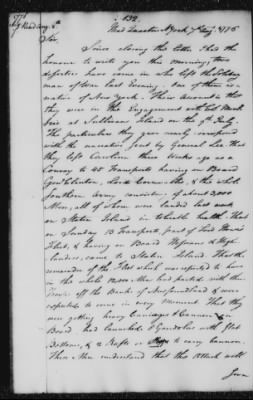 132
Head Quarters N York 7th Augt 1776
Read Augt 8th
Sir,
Since closing the letter I had the
honour to write you this morning, two
deserters have come in who left the Solebay
man of War last Evening. One of them is a
native of New York. Their Account is that
they were in the Engagement with Col
at Sullivans Island on the 9th July.
The particulars they give nearly correspond
with the narrative sent by General Lee. that
they left Carolina three weeks ago as a
Convoy to 45 Transports having on Board
Genl Clinton, Lord Cornwallis, & the whole
Southern Army consisting of about 3000
Men, all of whom were landed last week
on Staten Island in tolerable health. That
on Sunday 13 Transports part of Lord Howe's
Fleet, & having on Board Hessians & High-
landers came to Staten Island. That the
remainder of the Fleet which was reported to have
in the whole 12000 Men had parted with these
Troops off the Banks of Newfoundland & were
expected to come in every moment. That they
were getting their heavy Carriages & Cannon on
Board, had launched 8 Gondolas with flat
Bottoms, & 2 Rafts or Stages to carry Cannon.
These Men understand that the Attack will
soon